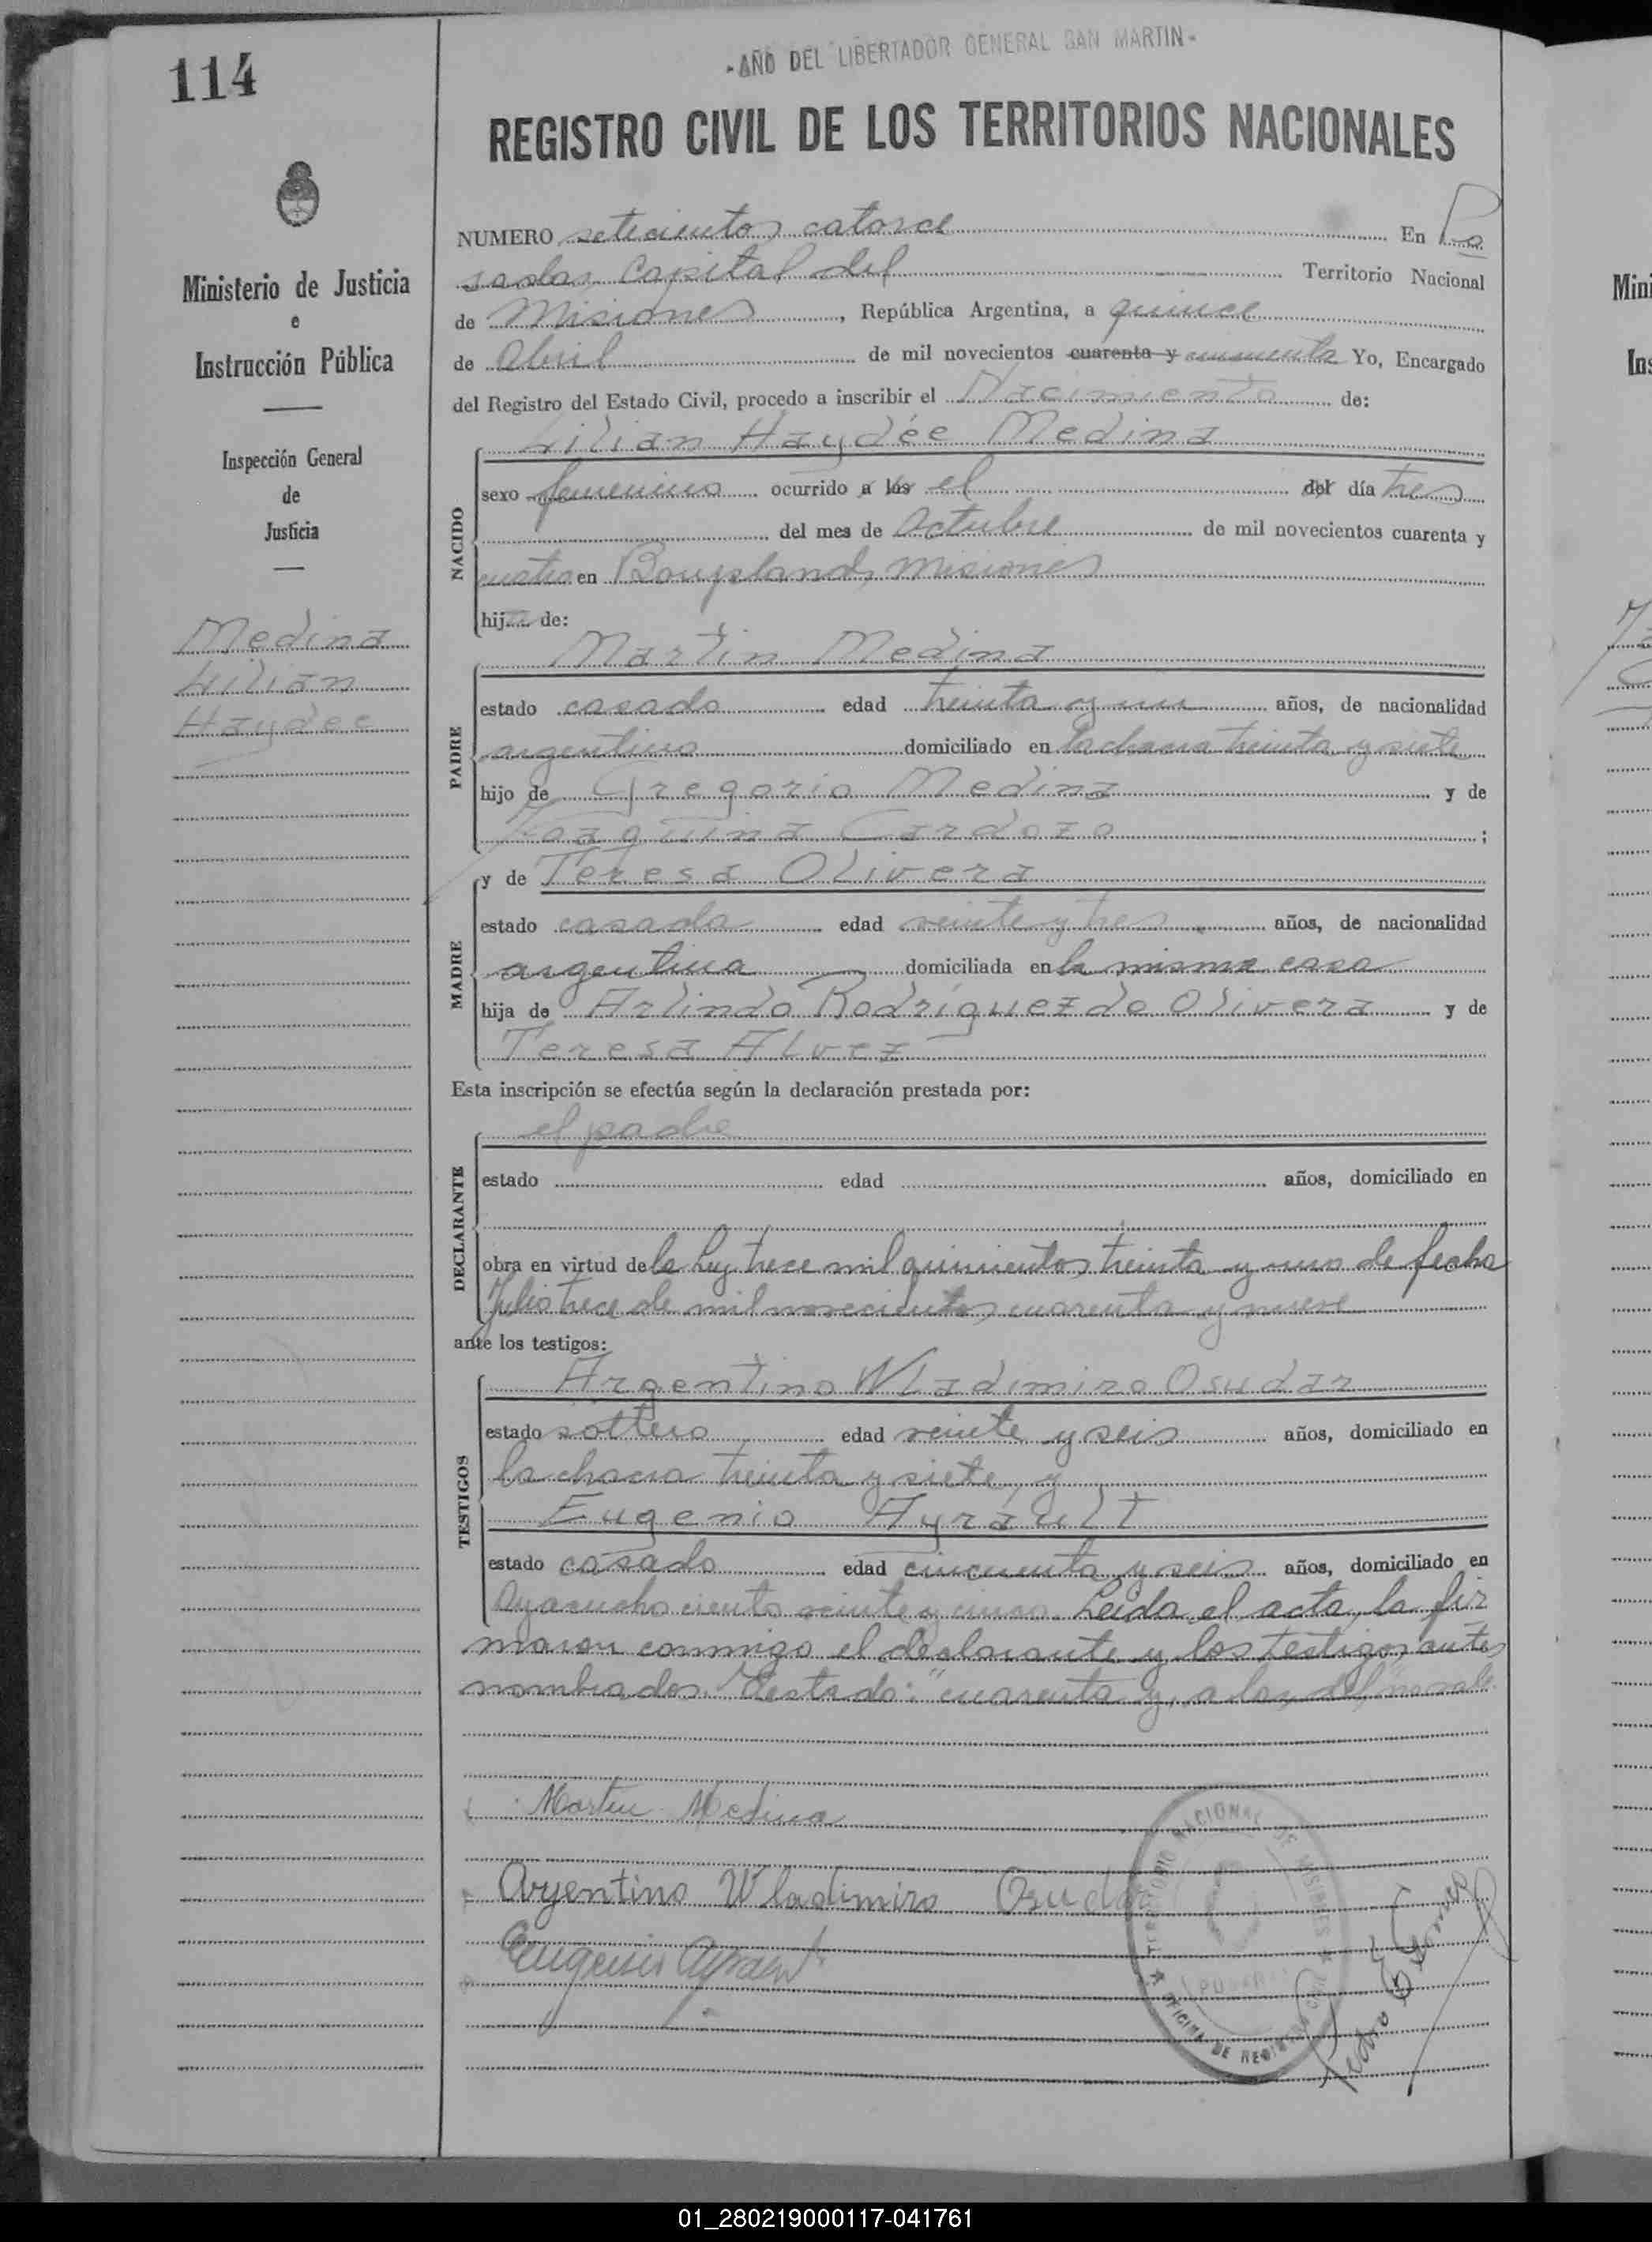 114
- AÑO DEL LIBERTADOR GENERAL SAN MARTIN -
REGISTRO CIVIL DE LOS TERRITORIOS NACIONALES
Ministerio de Justicia
e
Instrucción Pública
Inspección General
de
Justicia
Medina
Lilian
Haydée
NUMERO setecientos catorce En Po
sadas, Capital del Territorio Nacional
de Misiones, República Argentina, a quince
de Abril de mil novecientos cuarenta y cincuenta Yo, Encargado
del Registro del Estado Civil, procedo a inscribir el Nacimiento de:
Lilian Haydée Medina
NACIDO
sexo femenino ocurrido a las el del día tres
del mes de Octubre de mil novecientos cuarenta y
cuatro en Bonpland, Misiones
hija de:
Martin Medina
PADRE
estado casado edad treinta y un años, de nacionalidad
argentino domiciliado en la chacra treinta y siete
hijo de Gregorio Medina y de
Joaquina Cardozo ;
y de Teresa Olivera
MADRE
estado casada edad veinte y tres años, de nacionalidad
argentina domiciliada en la misma casa
hija de Arlindo Rodríguez do Olivera y de
Teresa Alvez
Esta inscripción se efectúa según la declaración prestada por:
el padre
DECLARANTE
estado edad años, domiciliado en
obra en virtud de la Ley trece mil quinientos treinta y uno de fecha
Julio trece de mil novecientos cuarenta y nueve
ante los testigos:
Argentino Wladimiro Osudar
TESTIGOS
estado soltero edad veinte y seis años, domiciliado en
la chacra treinta y siete, y
Eugenio Ayrault
estado casado edad cincuenta y seis años, domiciliado en
Ayacucho ciento veinte y cinco. Leída el acta, la fir
maron conmigo el declarante y los testigos antes
nombrados. Testado: "cuarenta y, a las, del," no vale
Martin Medina
Argentino Wladimiro Osudar
Eugenio Ayrault
TERRITORIO NACIONAL DE MISIONES
OFICINA DE REGISTRO
Pedro
01_280219000117-041761